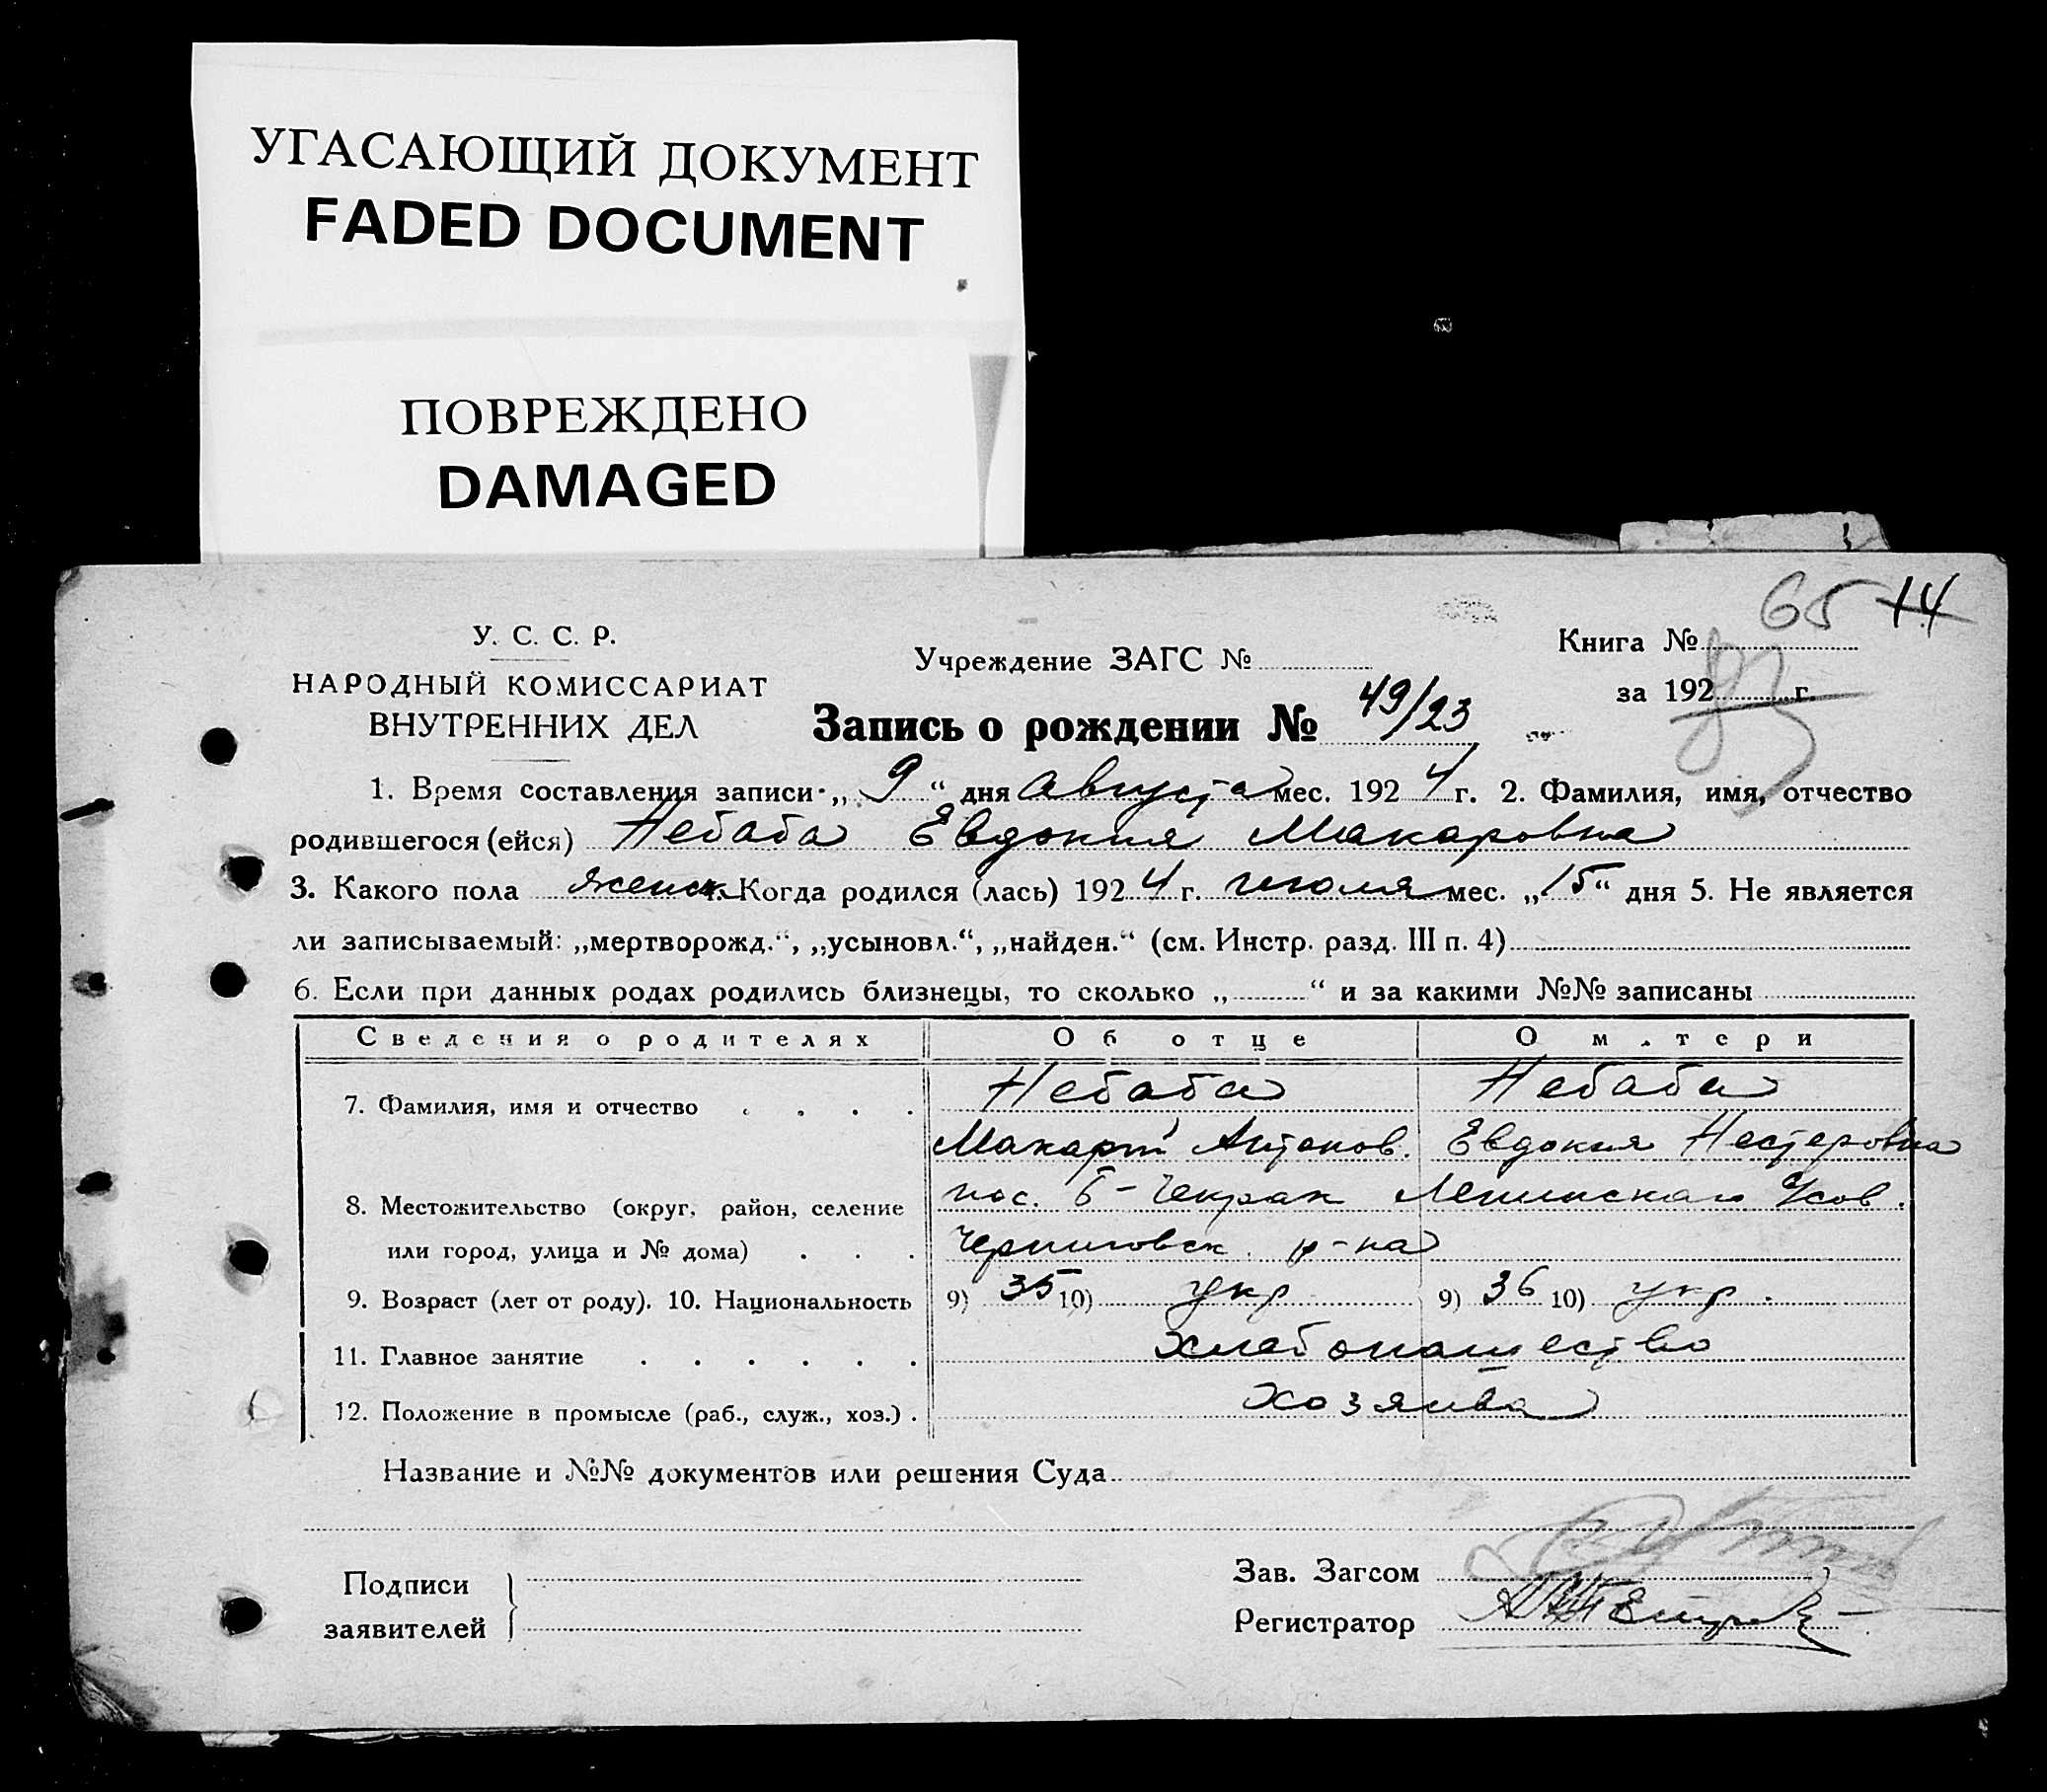 УГАСАЮЩИЙ ДОКУМЕНТ
FADED DOCUMENT
ПОВРЕЖДЕНО
DAMAGED
65 14
У. С. С. Р.
НАРОДНЫЙ КОМИССАРИАТ
ВНУТРЕННИХ ДЕЛ
Учреждение ЗАГС №
Книга №
за 192 г.
Запись о рождении № 49/23
1. Время составления записи „9“ дня августа мес. 1924 г. 2. Фамилия, имя, отчество
родившегося (ейся) Небаба Евдокия Макаровна
3. Какого пола женск. Когда родился (лась) 1924 г. июля мес. „15“ дня 5. Не является
ли записываемый: „мертворожд.“, „усыновл.“, „найден.“ (см. Инстр. разд. III п. 4)
6. Если при данных родах родились близнецы, то сколько „ “ и за какими №№ записаны
Сведения о родителях Об отце О матери
7. Фамилия, имя и отчество Небаба Небаба
Макарий Антонов. Евдокия Нестеровна
8. Местожительство (округ, район, селение пос. Б-Чекрак
или город, улица и № дома) Черниговск. р-на
9. Возраст (лет от роду). 10. Национальность 9) 35 10) укр 9) 36 10) укр.
11. Главное занятие хлебопашество
12. Положение в промысле (раб., служ., хоз.) хозяива
Название и №№ документов или решения Суда
Подписи
заявителей
Зав. Загсом
Регистратор